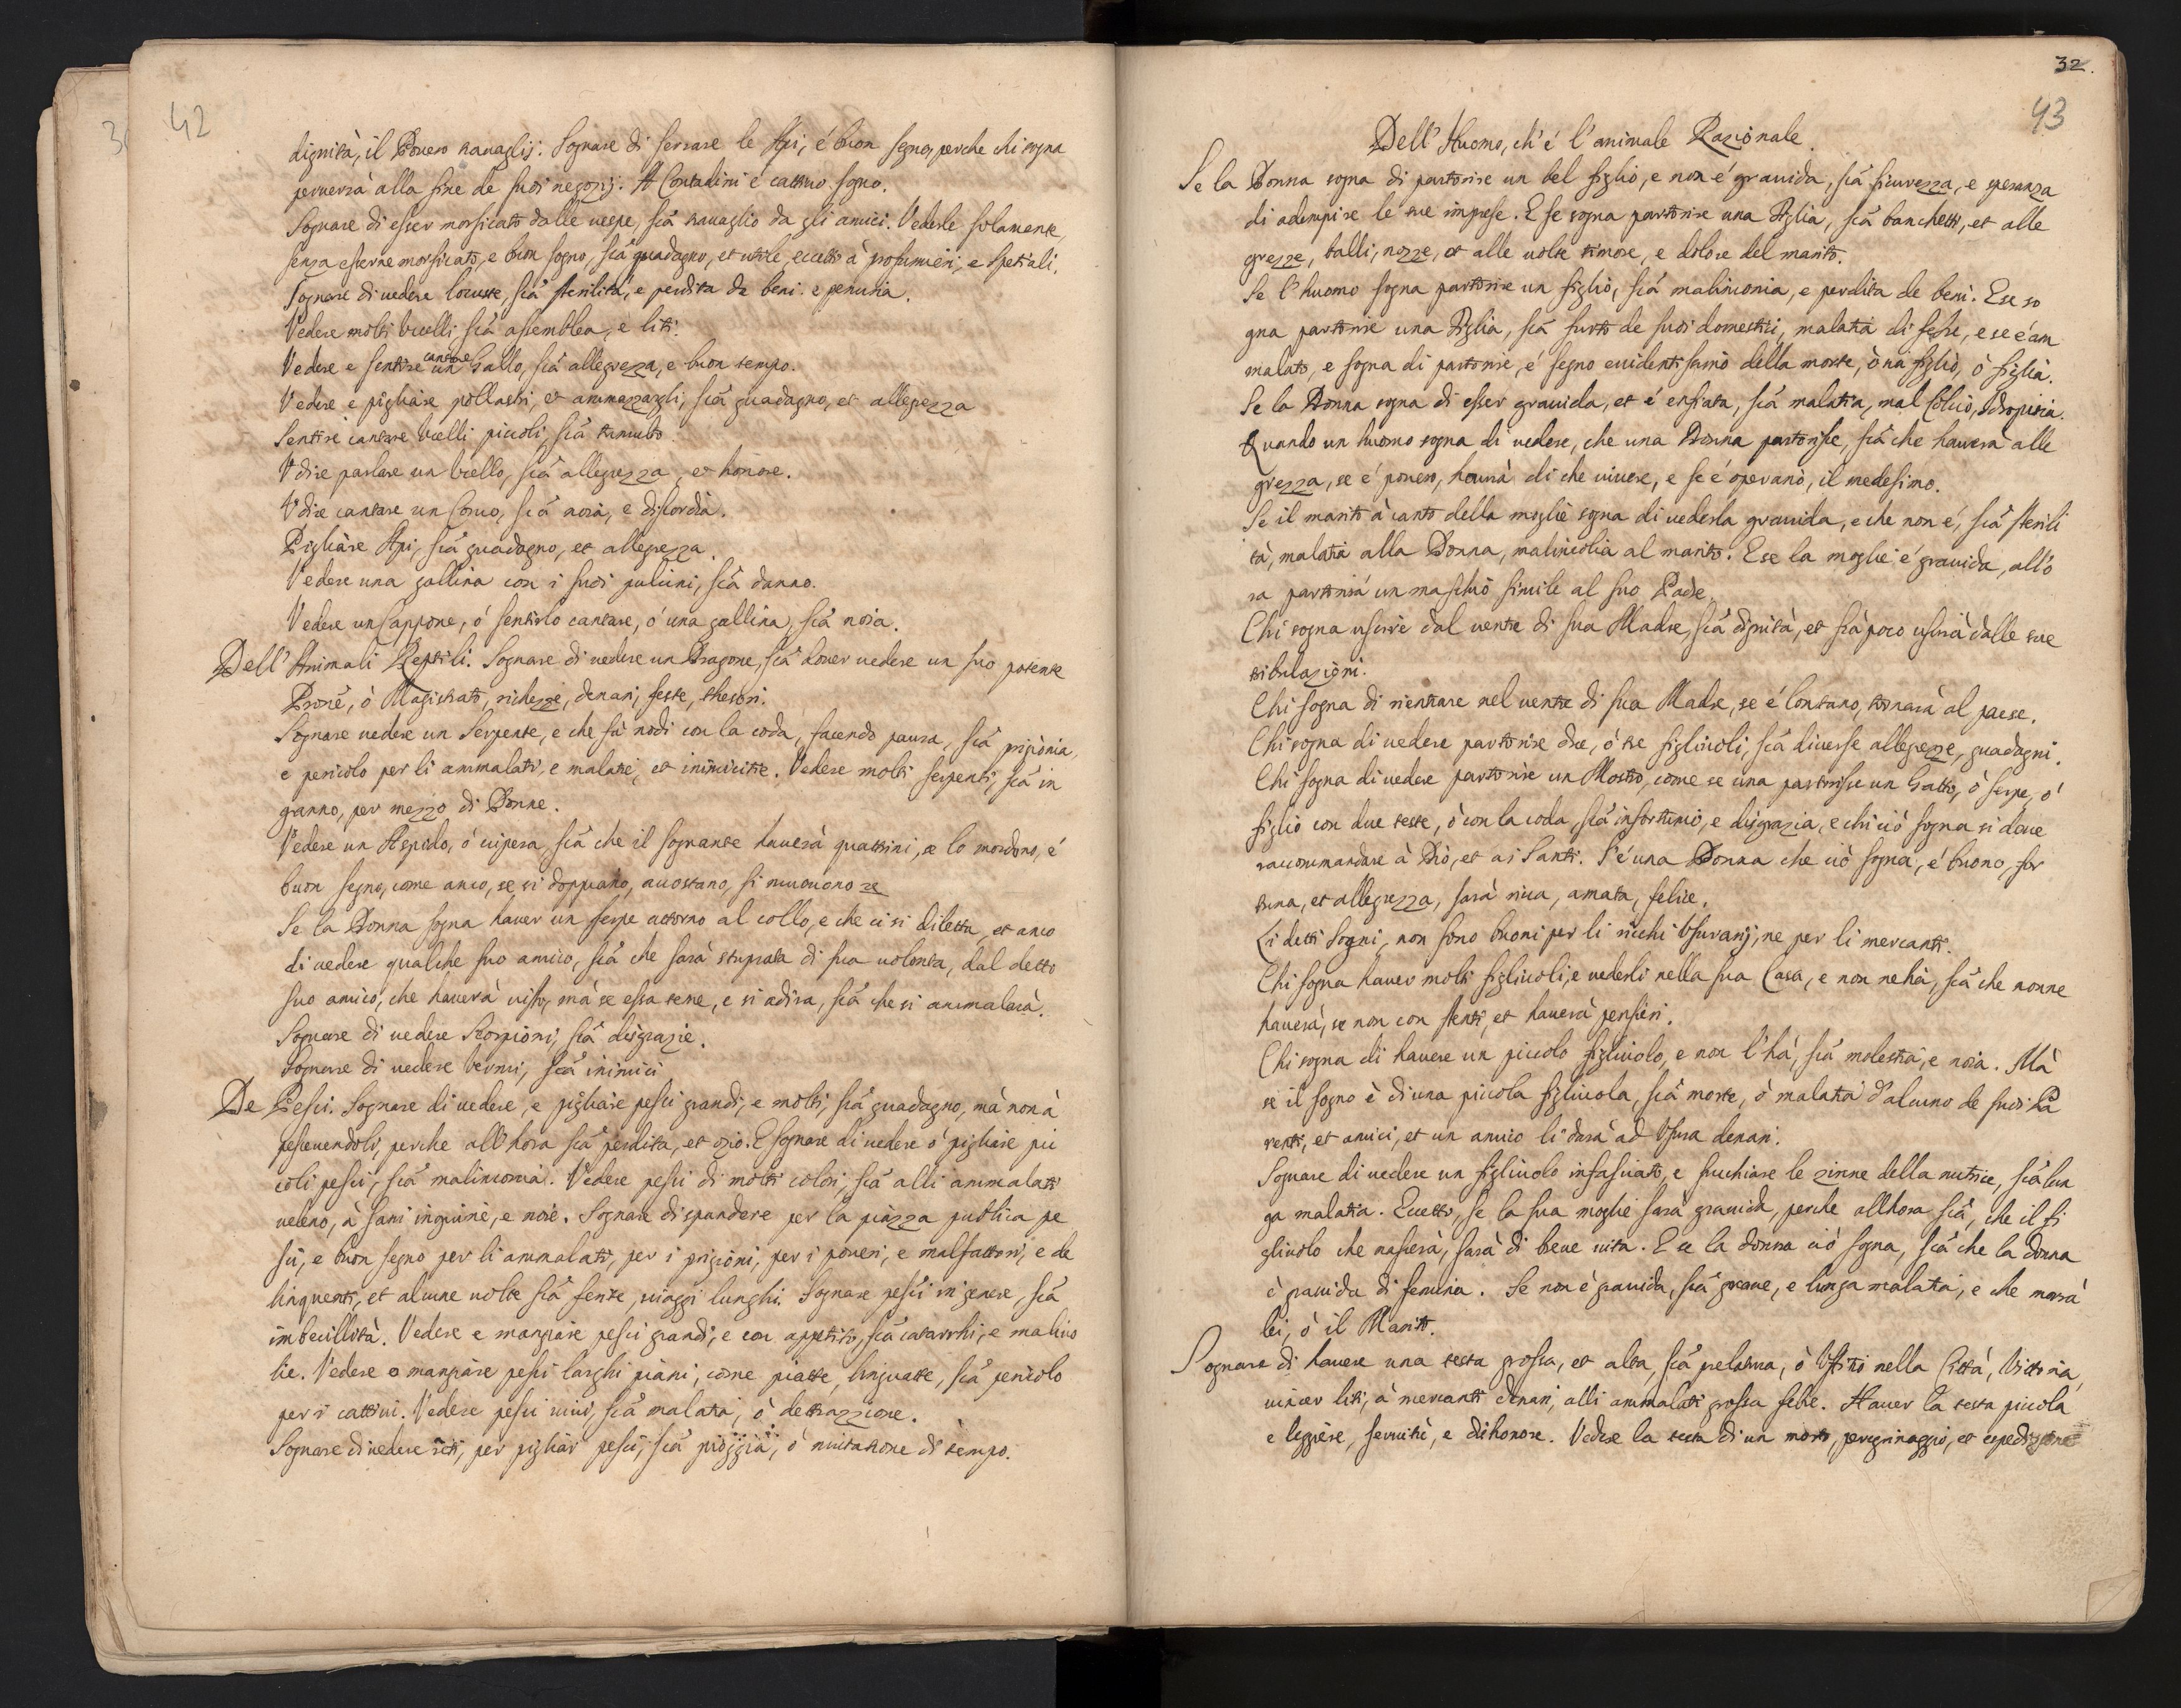 42
dignità, il Povero travaglij. Sognare di serrare le Api, é buon segno, perche chi sogna
perverrà alla fine de suoi negozij. A Contadini é cattivo sogno.
Sognare di esser morsicato dalle vespe, sià travaglio da gli amici. Vederle solamente
senza esserne morsicato, e buon sogno, sià guadagno, et utile, eccetto à profumieri, e Spetiali.
Sognare di vedere locuste, sià sterilità, e perdita de beni. e penuria.
Vedere molti Vcelli sià assemblea, e liti.
Vedere e sentire cantare un Gallo, sià allegrezza, e buon tempo.
Vedere e pigliare pollastri, et ammazzargli, sià guadagno, et allegrezza
Sentire cantare Vcelli piccoli, sià tumulto.
Vdire parlare un Vcello, sià allegrezza, et honore.
Vdire cantare un Corvo, sià noia, e discordia.
Pigliare Api, sià guadagno, et allegrezza.
Vedere una gallina con i suoi pulcini, sià danno.
Vedere un Cappone, ó sentirlo cantare, ó una gallina, sià noia.
Dell' Animali Reptili. Sognare di vedere un Dragone, sià dover vedere un suo potente
Prone, ò Magistrato, richezze, denari, feste, thesori.
Sognare vedere un Serpente, e che fà nodi con la coda, facendo paura, sià prigionia,
e pericolo per li ammalati, e malatie, et inimicitie. Vedere molti serpenti, sià in
ganno, per mezzo di Donne.
Vedere un Aspido, ó vipera, sià che il sognante haverà quattrini, se lo mordono, é
buon segno, come anco, se si doppiano, accostano, si muovono
Se la Donna sogna haver un serpe attorno al collo, e che ci si diletta, et anco
di vedere qualche suo amico, sià che sarà stuprata di sua volonta, dal detto
suo amico, che haverà visto, mà se essa teme, e si adira, sià che si ammalarà.
Sognare di vedere Scorpioni, sià disgrazie.
Sognare di vedere Vermi, sià inimici
De Pesci. Sognare di vedere, e pigliare pesci grandi, e molti, sià guadagno, mà non à
pescivendoli, perche all'hora sià perdita, et ozio. E sognare di vedere ò pigliare pic
coli pesci, sià malinconia. Vedere pesci di molti colori, sià alli ammalati
veleno, à sani ingiurie, e noie. Sognare di spandere per la piazza publica pe
sci, e buon segno per li ammalati, per i prigioni, per i poveri, e malfattori, e de
linquenti, et alcune volte sià ferite, viaggi lunghi. Sognare pesci in genere, sià
imbecillità. Vedere e mangiare pesci grandi, e con appetito, sià catarrhi, e malinco
lie. Vedere o mangiare pesci larghi piani, come piatte, linguatte, sià pericolo
per i cattivi. Vedere pesci vivi, sià malatia, ò detrazzione.
Sognare di vedere reti, per pigliar pesci, sià pioggia, ò mutatione di tempo.
32.
43
Dell' Huomo, ch' é l' animale Razionale.
Se la Donna sogna di partorire un bel figlio, e non é gravida, sià sicurezza, e speranza
di adempire le sue imprese. E se sogna partorire una Figlia, sià banchetti, et alle
grezze, balli, nozze, et alle volte timore, e dolore del marito.
Se l' huomo sogna partorire un figlio, sià malinconia, e perdita de beni. E se so
gna partorire una Figlia, sià furto de suoi domestici, malatia di febre, e se é am
malato, e sogna di partorire, é segno evidentissimo della morte, ò na figlio, ò figlia.
Se la Donna sogna di esser gravida, et é enfiata, sià malatia, mal colico, Idropisia.
Quando un huomo sogna di vedere, che una Donna partorisce, sià che haverà alle
grezza, se é povero, haverà di che vivere, e se é operario, il medesimo.
Se il marito à canto della moglie sogna di vederla gravida, e che non é, sià sterili
tà, malatia alla Donna, malincolia al marito. E se la moglie é gravida, allo
ra partorirà un maschio simile al suo Padre.
Chi sogna uscire dal ventre di sua Madre, sià dignità, et frà poco uscirà dalle sue
tribulazioni.
Chi sogna di rientrare nel ventre di sua Madre, se é lontano, tornarà al paese.
Chi sogna di vedere partorire due, ò tre figliuoli, sià diverse allegrezze, guadagni.
Chi sogna di vedere partorire un Mostro, come se una partorisse un Gatto, ò serpe, ó
figlio con due teste, ò con la coda, sià infortunio, e disgrazia, e chi ciò sogna si deve
raccommandare à Dio, et ai Santi. S' é una Donna che ciò sogna, é buono, for
tuna, et allegrezza, sarà ricca, amata, felice.
Li detti Sogni, non sono buoni per li ricchi Vsurarij, ne per li mercanti.
Chi sogna haver molti figliuoli, e vederli nella sua Casa, e non ne hà, sià che non ne
haverà, se non con stenti, et haverà pensieri.
Chi sogna di havere un piccolo figliuolo, e non l' hà, sià molestia, e noia. Mà
se il sogno è di una piccola figliuola, sià morte, ò malatia d' alcuno de suoi Pa
renti, et amici, et un amico li darà ad Vsura denari.
Sognare di vedere un figliuolo infasciato, e succhiare le zinne della nutrice, sià lun
ga malatia. Eccetto, se la sua moglie sarà gravida, perche all'hora sià, che il fi
gliuolo che nascerà, sarà di breve vita. E se la donna ciò sogna, sià che la donna
è gravida di femina. Se non è gravida, sià grave, e longa malatia, e che morrà
lei, ò il Marito.
Sognare di havere una testa grossa, et alta, sià prelatura, ò Vffitio nella Città, Vittoria,
vincer liti, à mercanti denari, alli ammalati grossa febre. Haver la testa piccola
e leggiere, servitù, e dishonore. Vedere la testa di un morto, peregrinaggio, et espedizione